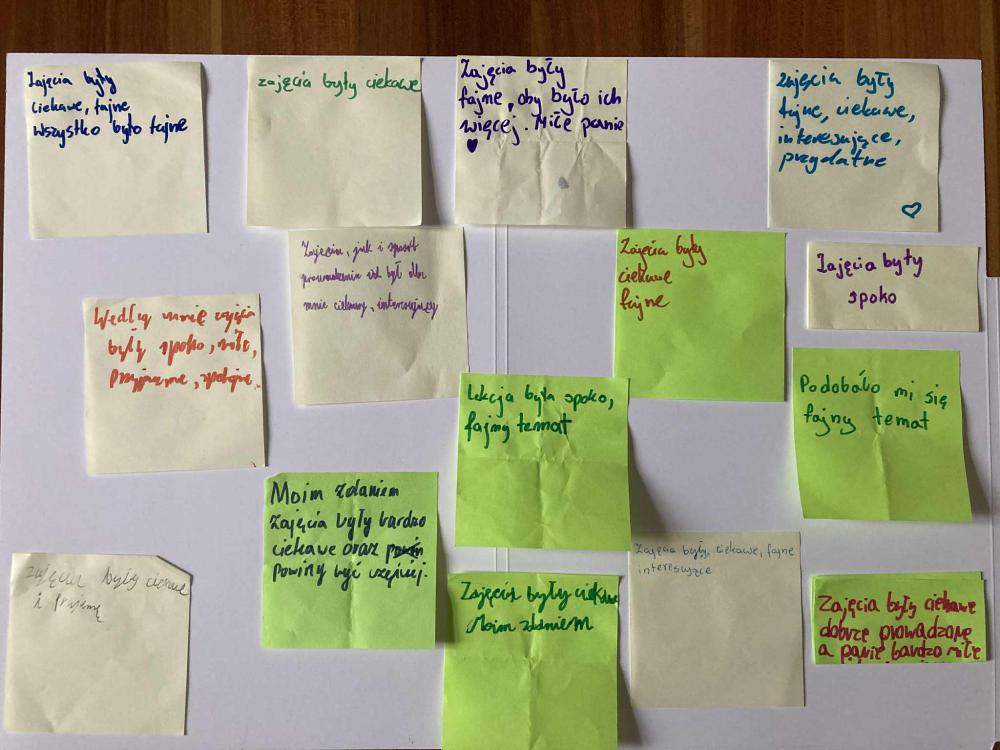 Zajęcia były
ciekawe, fajne
Wszystko było fajne
zajęcia były ciekawe
Zajęcia były
fajne, oby było ich
więcej. Miłe panie
zajęcia były
fajne, ciekawe,
interesujące,
przydatne
Zajęcia, jak i sposób
prowadzenia ich był dla
mnie ciekawy, interesujący
Zajęcia były
ciekawe
fajne
Zajęcia były
spoko
Według mnie zajęcia
były spoko, miłe,
Przyjemne,
Lekcja była spoko,
fajny temat
Podobało mi się
fajny temat
Moim zdaniem
Zajęcia były bardzo
ciekawe oraz
powiny być częściej.
zajęcia były ciekawe
i
Zajęcia były ciekawe
Moim zdaniem
Zajęcia były, ciekawe, fajne
interesujące
Zajęcia były ciekawe
dobrze prowadzone
a panie bardzo miłe